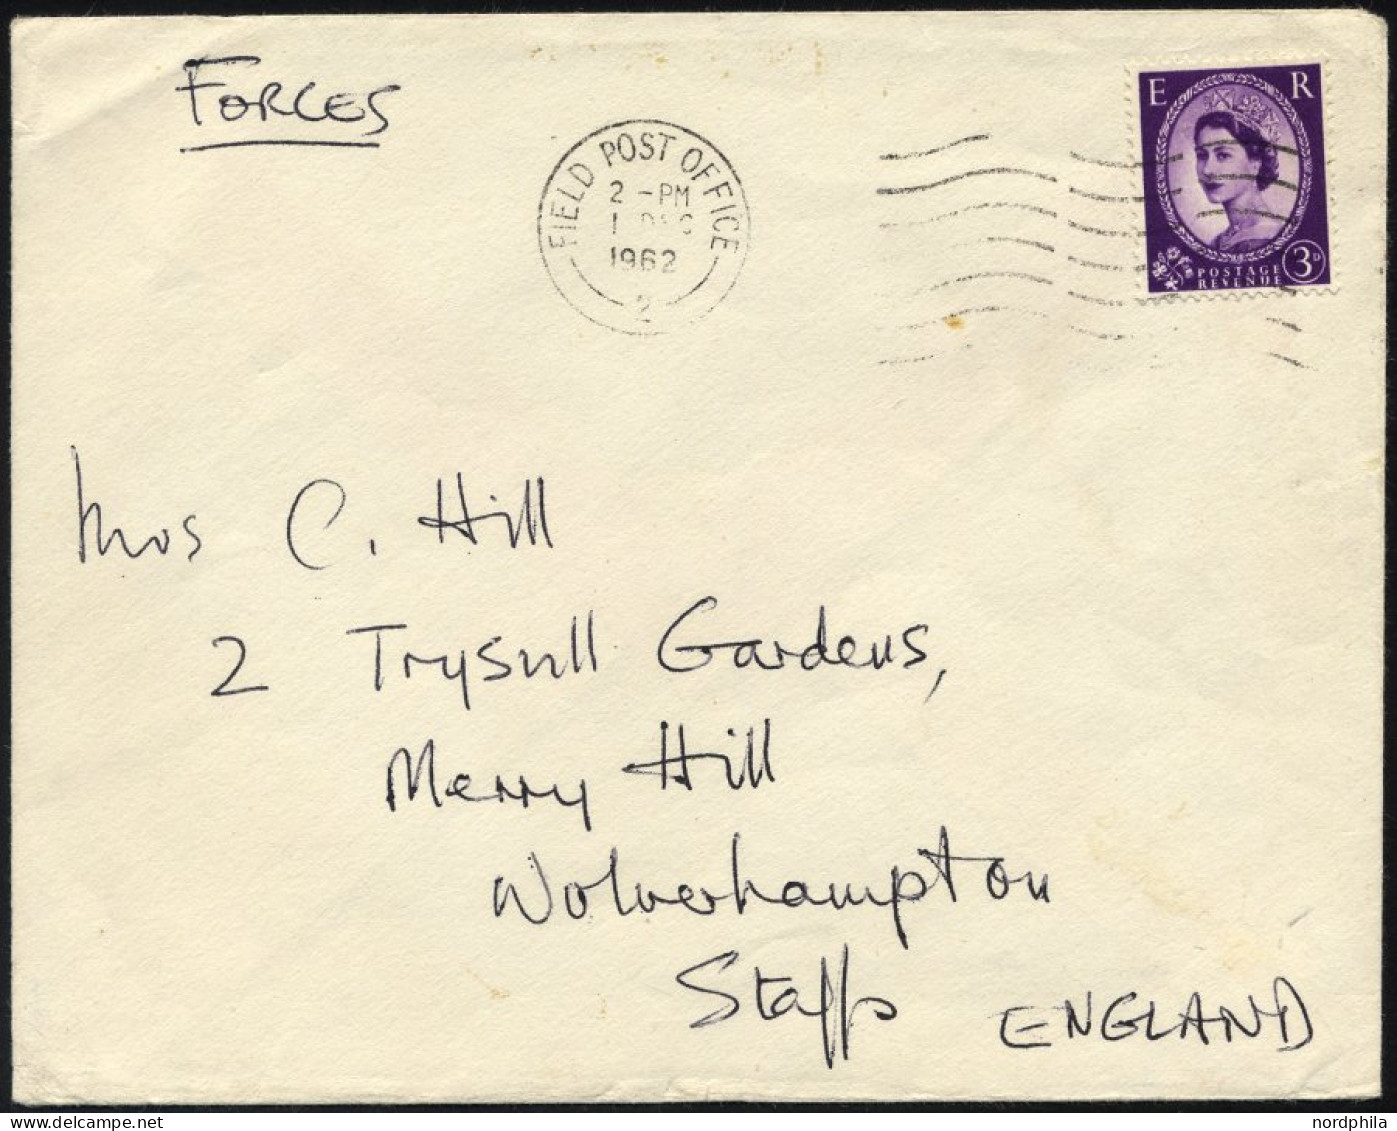 FORCES
FIELD POST OFFICE
2 - PM
1 DEC
1962
2
E R
3D
POSTAGE
REVENUE
Mrs C. Hill
2 Trysull Gardens,
Merry Hill
Wolverhampton
Staffs ENGLAND
nordphila